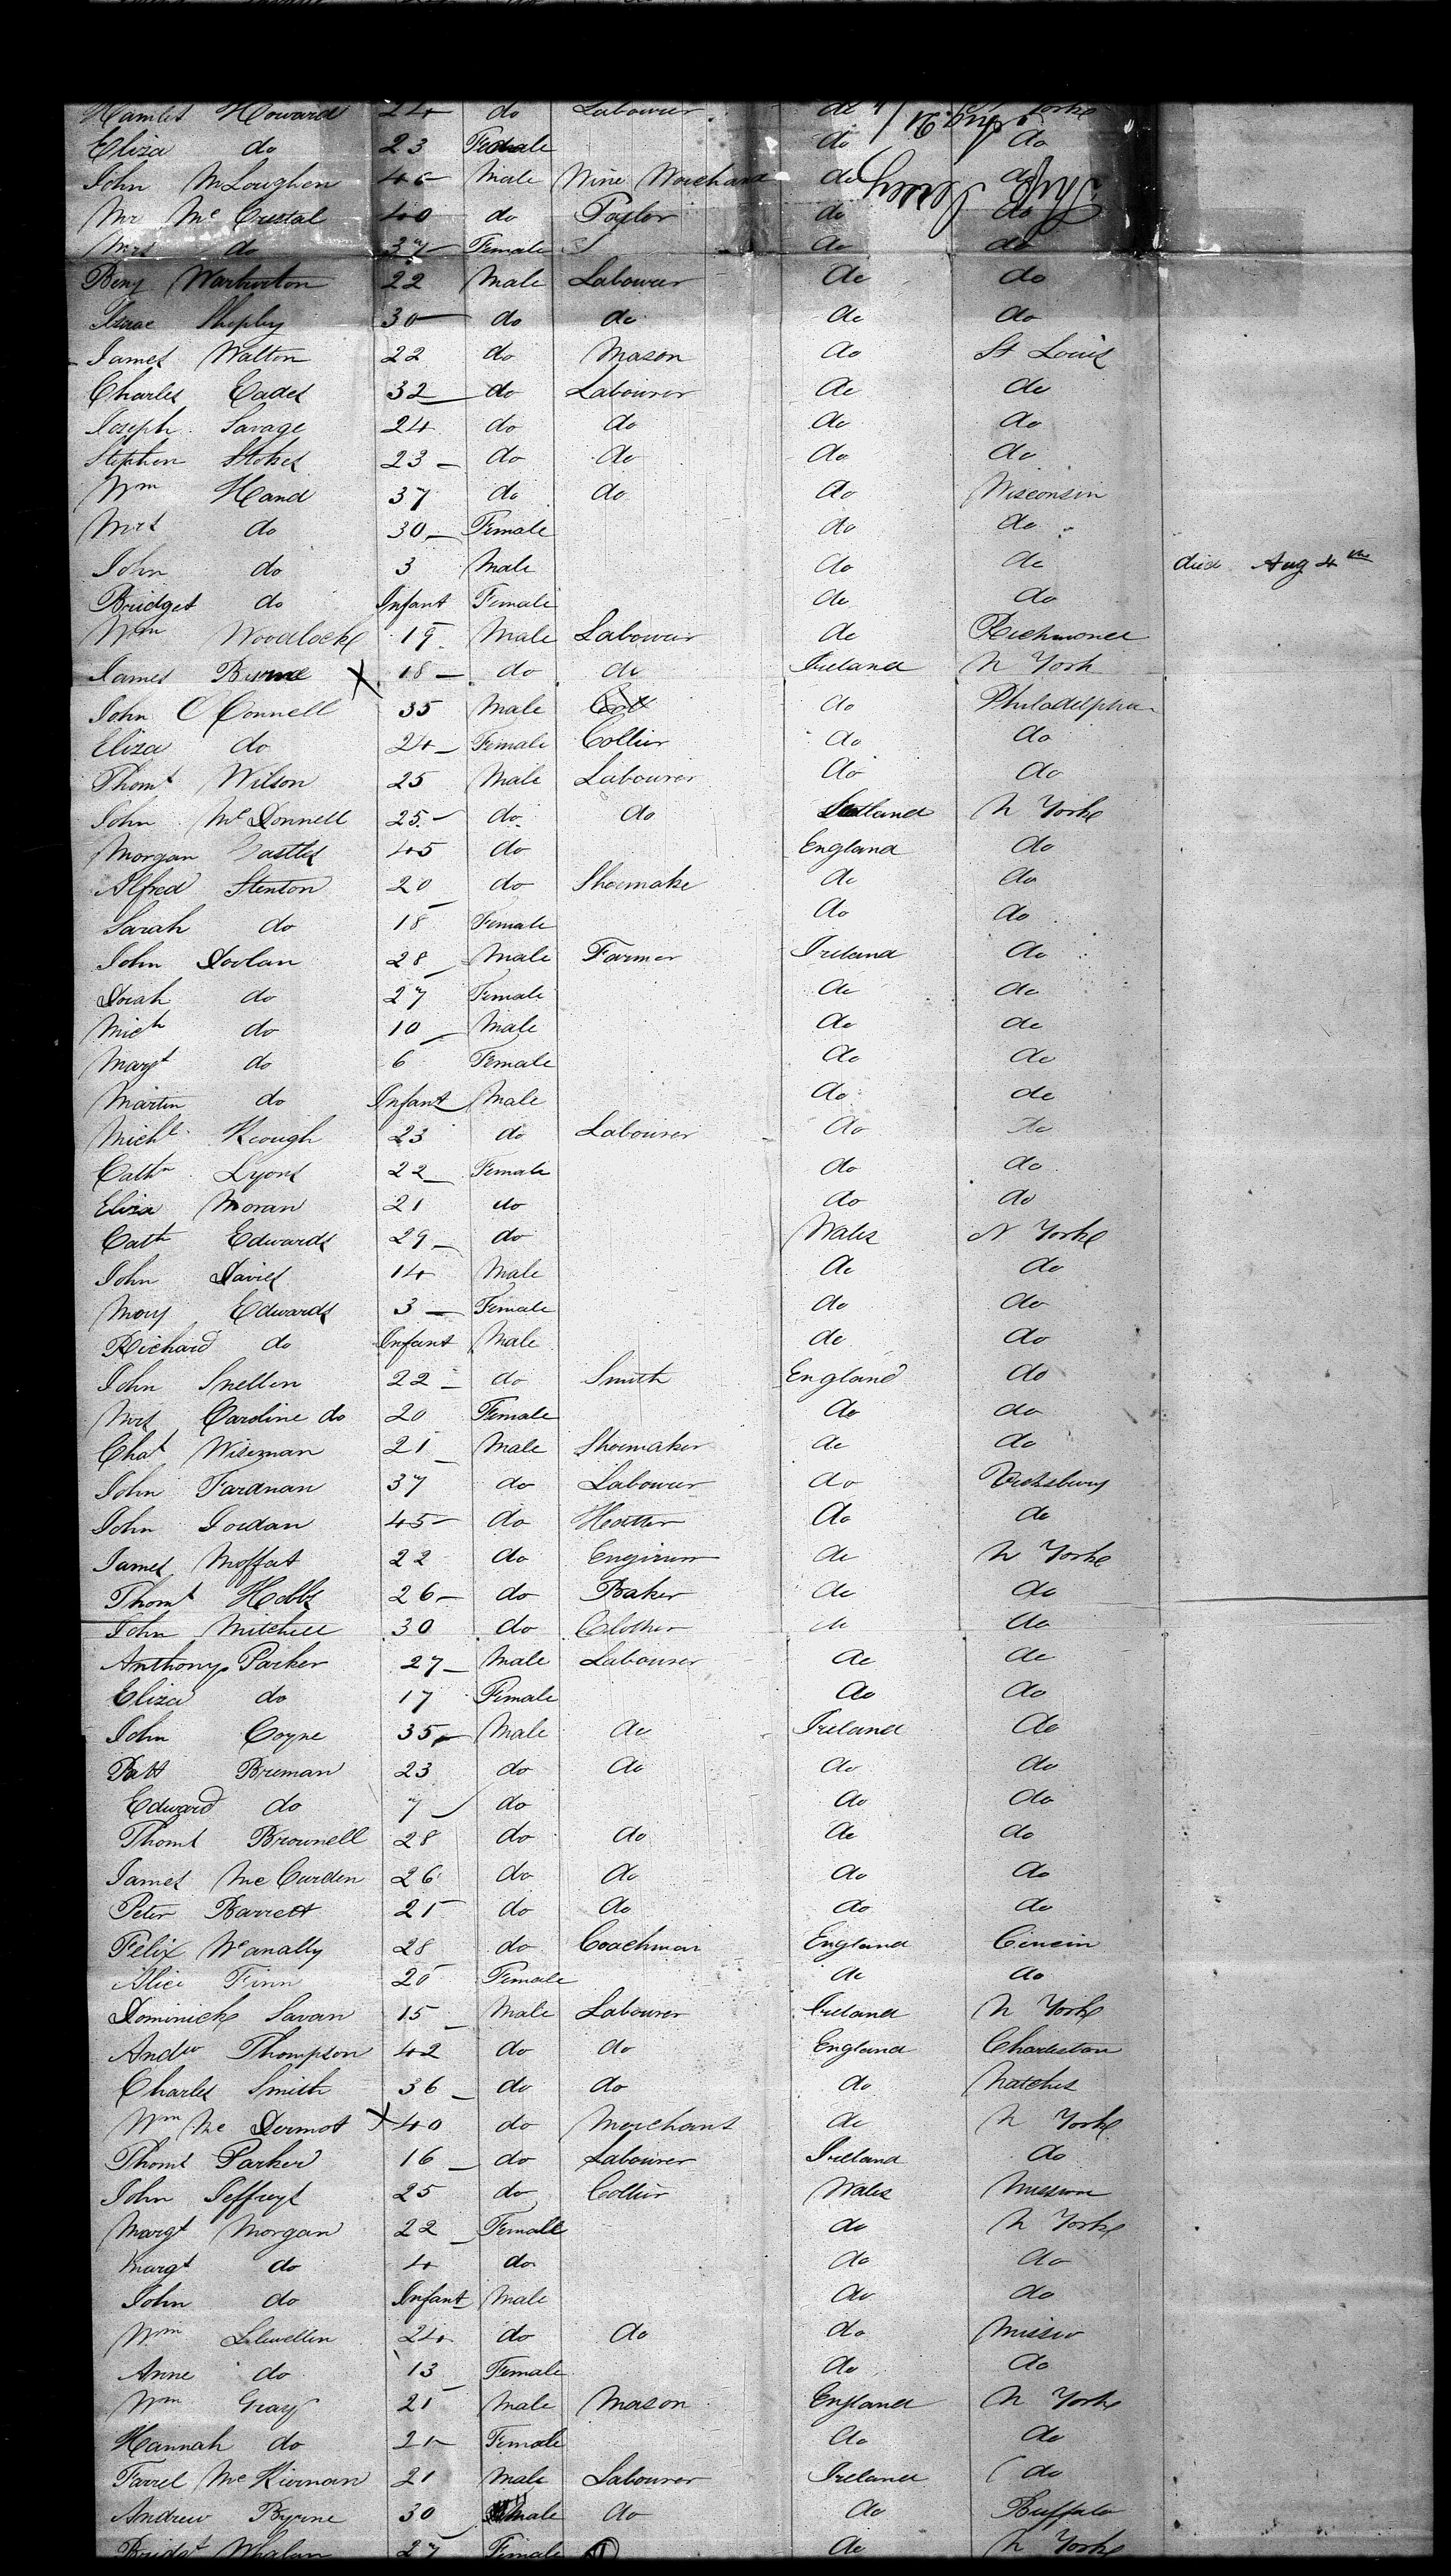 Hamlet Howard 24 do Labourer do Yorke
Eliza do 23 Female do do
John McLoughen 45 Male Wine Merchant do do
Mr Mc Cristal 40 do do do
Mrs do 37 Female do do
Benj Warburton 22 Male Labourer do do
Isaac Shepley 30 do do do do
James Walton 22 do Mason do St Louis
Charles Eades 32 do Labourer do do
Joseph Savage 24 do do do do
Stephen Stokes 23 do do do do
Wm Hand 37 do do do Wisconsin
Mrs do 30 Female do do
John do 3 Male do do died Aug 4th
Bridget do Infant Female do do
Wm Woodlock 19 Male Labourer do Richmond
James X 18 do do Ireland N York
John O Connell 35 Male do Philadelphia
Eliza do 24 Female Collier do do
Thoms Wilson 25 Male Labourer do do
John McDonnell 25 do do N Yorke
Morgan 45 do England do
Alfred Stenton 20 do Shoemake do do
Sarah do 18 Female do do
John Doolan 28 Male Farmer Ireland do
do 27 Female do do
Mich do 10 Male do do
Margt do 6 Female do do
Martin do Infant Male do do
Michl Keough 23 do Labourer do do
Cathn Lyons 22 Female do do
Eliza Moran 21 do do do
Cath Edwards 29 do Wales N Yorke
John Davies 14 Male do do
Mary Edwards 3 Female do do
Richard do Infant Male do do
John Snellen 22 do Smith England do
Mrs Caroline do 20 Female do do
Chas Wiseman 21 Male Shoemaker do do
John Fardnan 37 do Labourer do Vicksburg
John Jordan 45 do Hatter do do
James Moffat 22 do do N Yorke
Thoms Hobbs 26 do Baker do do
John Mitchell 30 do Clother do do
Anthony Parker 27 Male Labourer do do
Eliza do 17 Female do do
John Coyne 35 Male do Ireland do
Patt Brennan 23 do do do do
Edward do 7 do do do
Thoms Brownell 28 do do do do
James Mc Carden 26 do do do do
Peter Barrett 21 do do do do
Felix McAnally 28 do Coachman England Cincin
Alice Finn 20 Female do do
Dominick Savan 15 Male Labourer Ireland N Yorke
Andw Thompson 42 do do England Charleston
Charles Smith 36 do do do Natches
Wm Mc Dermot X 40 do Merchant do N Yorke
Thoms Parker 16 do Labourer Ireland do
John Jeffreys 25 do Collier Wales
Margt Morgan 22 Female do N Yorke
Margt do 4 do do do
John do Infant Male do do
Wm Llewellin 24 do do do
Anne do 13 Female do do
Wm Gray 21 Male Mason England N Yorke
Hannah do 21 Female do do
Farrel McKiernan 21 Male Labourer Ireland do
Andrew Byrne 30 Male do do Buffalo
Bridgt Whalan 27 Female do N Yorke